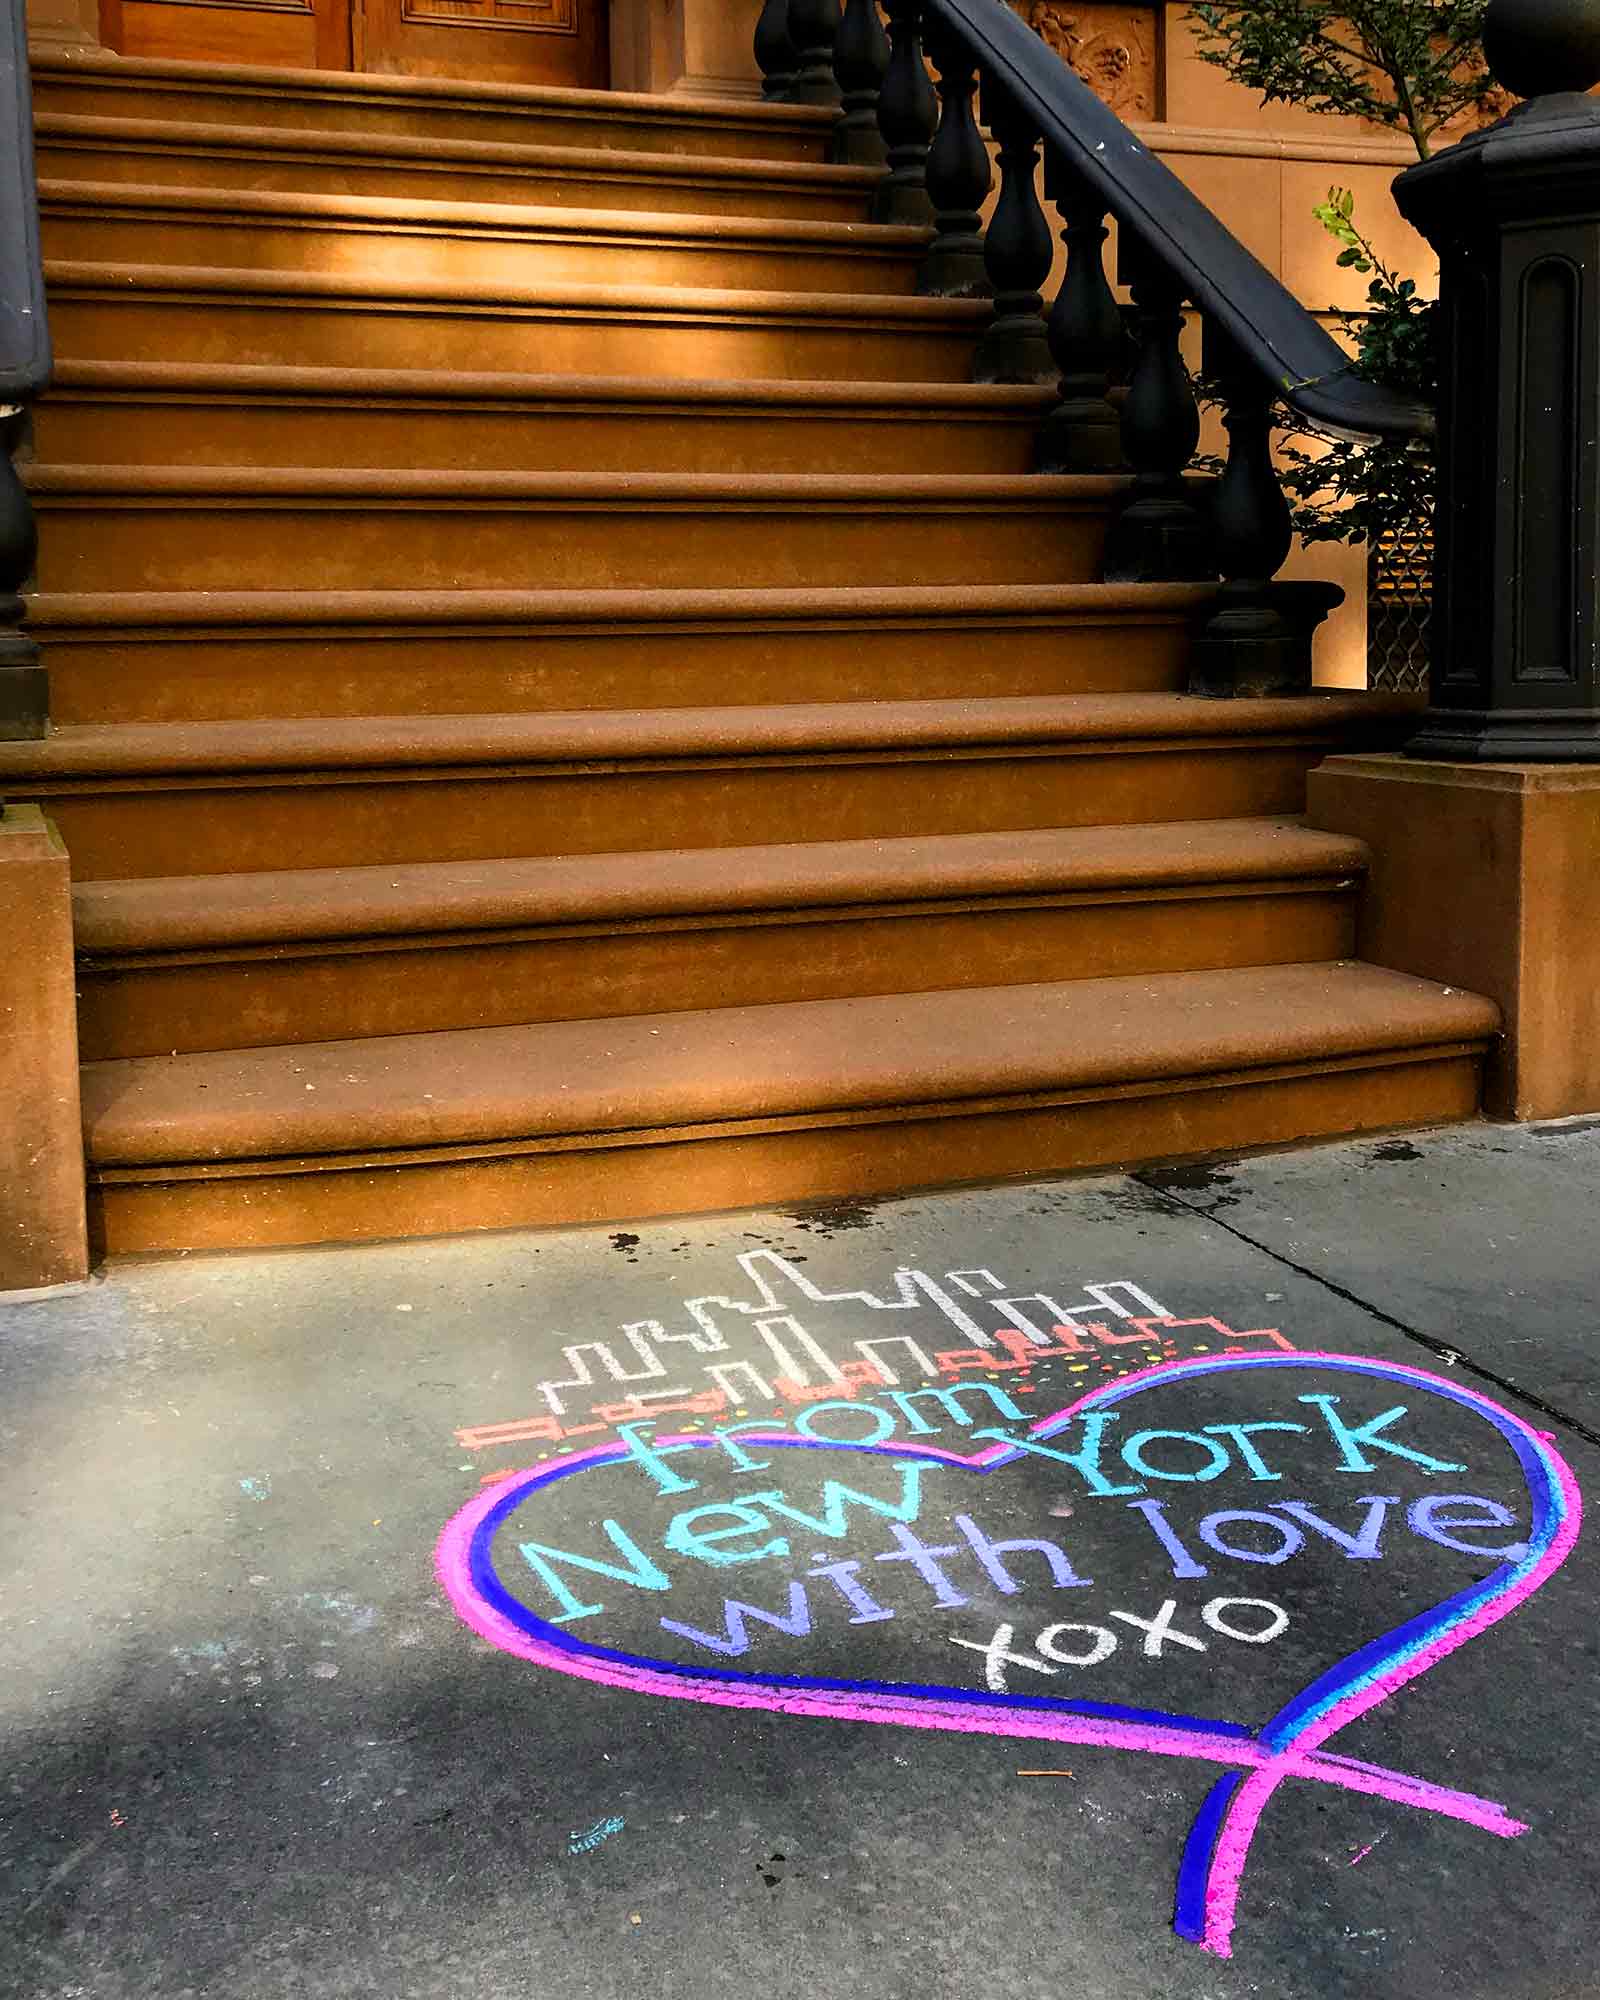 from
New York
with love
xoxo